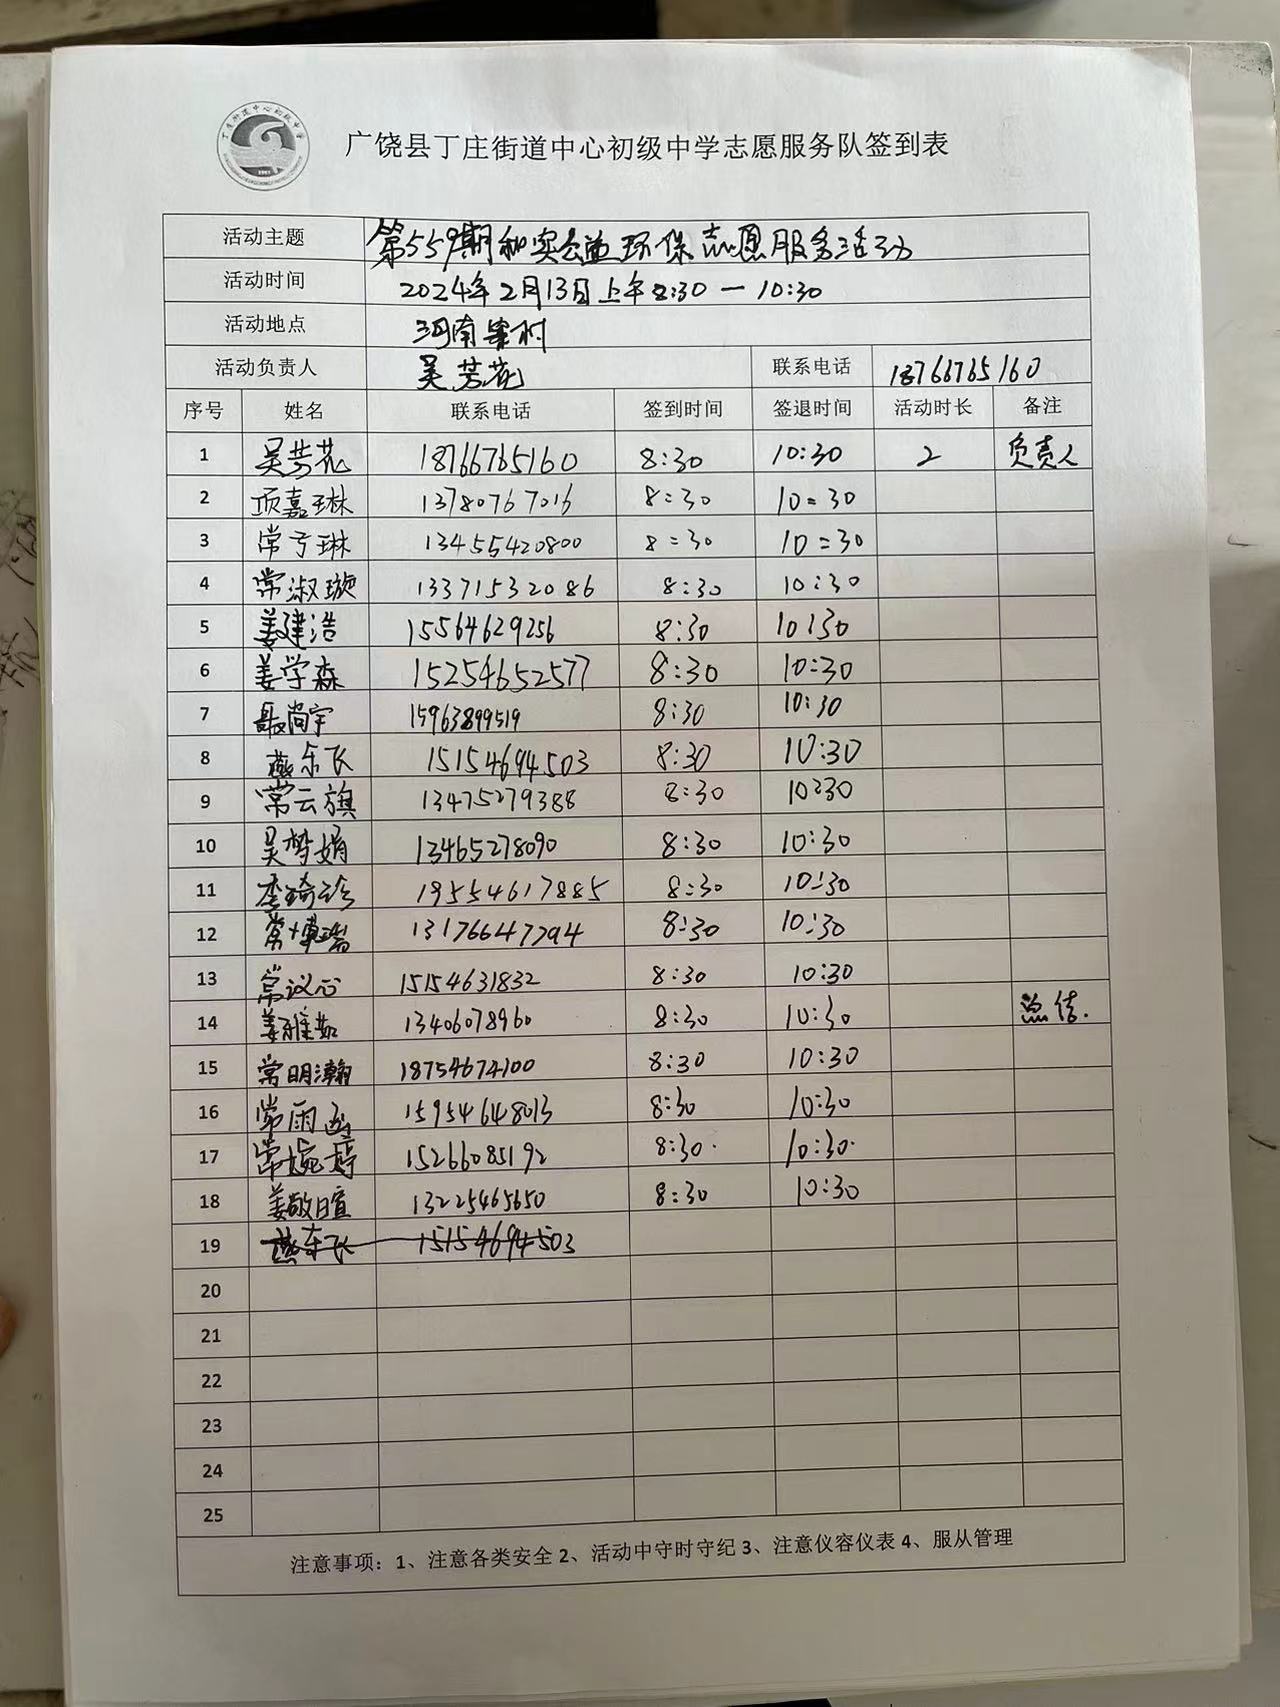 广饶县丁庄街道中心初级中学志愿服务队签到表
活动主题 第559期和实公益环保志愿服务活动
活动时间 2024年2月13日上午8:30—10:30
活动地点 河南 村
活动负责人 吴芳花 联系电话 18766765160
序号 姓名 联系电话 签到时间 签退时间 活动时长 备注
1 吴芳花 18766765160 8:30 10:30 2 负责人
2 项嘉琳 13780767016 8:30 10:30
3 常亏琳 13455420800 8:30 10:30
4 常淑璇 13371532086 8:30 10:30
5 姜建浩 15564629256 8:30 10:30
6 姜学森 15254652577 8:30 10:30
7 聂尚宇 15963899519 8:30 10:30
8 燕东飞 15154694503 8:30 10:30
9 常云旗 13475279388 8:30 10:30
10 吴梦娟 13465278090 8:30 10:30
11 李琦珍 19554617885 8:30 10:30
12 常博瑞 13176647794 8:30 10:30
13 常议心 15154631832 8:30 10:30
14 姜雅茹 13406078960 8:30 10:30 总结.
15 常明瀚 18754674100 8:30 10:30
16 常雨函 15954648013 8:30 10:30
17 常婉婷 15266085192 8:30. 10:30.
18 姜敬暄 13225465650 8:30 10:30
19 燕东飞 15154694503
20
21
22
23
24
25
注意事项：1、注意各类安全 2、活动中守时守纪 3、注意仪容仪表 4、服从管理